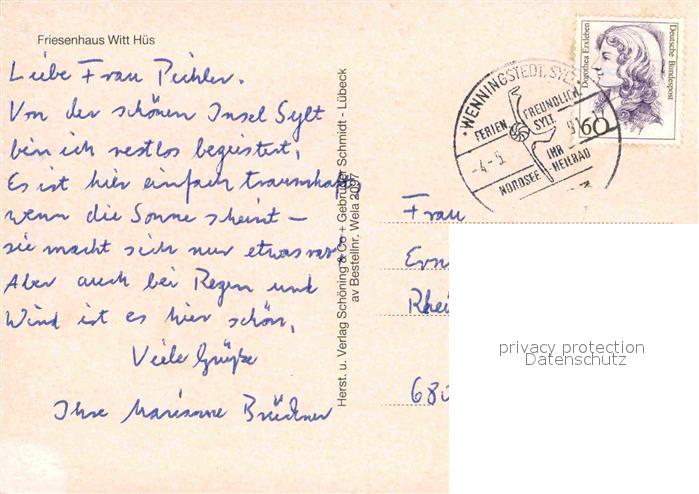 Friesenhaus Witt Hüs
Liebe Frau Pichler.
Von der schönen Insel Sylt
bin ich restlos begeistert,
Es ist hier einfach traumhaft
wenn die Sonne scheint –
sie macht sich nur etwas rar.
Aber auch bei Regen und
Wind ist es hier schön,
Viele Grüße
Ihre Marianne Brückner
Herst. u. Verlag Schöning & Co + Gebrüder Schmidt - Lübeck
av Bestellnr. Wela 2097
WENNINGSTEDT, SYLT
FERIEN
FREUNDLICH
SYLT
-4.-5
9
IHR
HEILBAD
NORDSEE
Dorothea Erxleben
Deutsche Bundespost
60
Frau
Ern
Rhei
680
privacy protection
Datenschutz